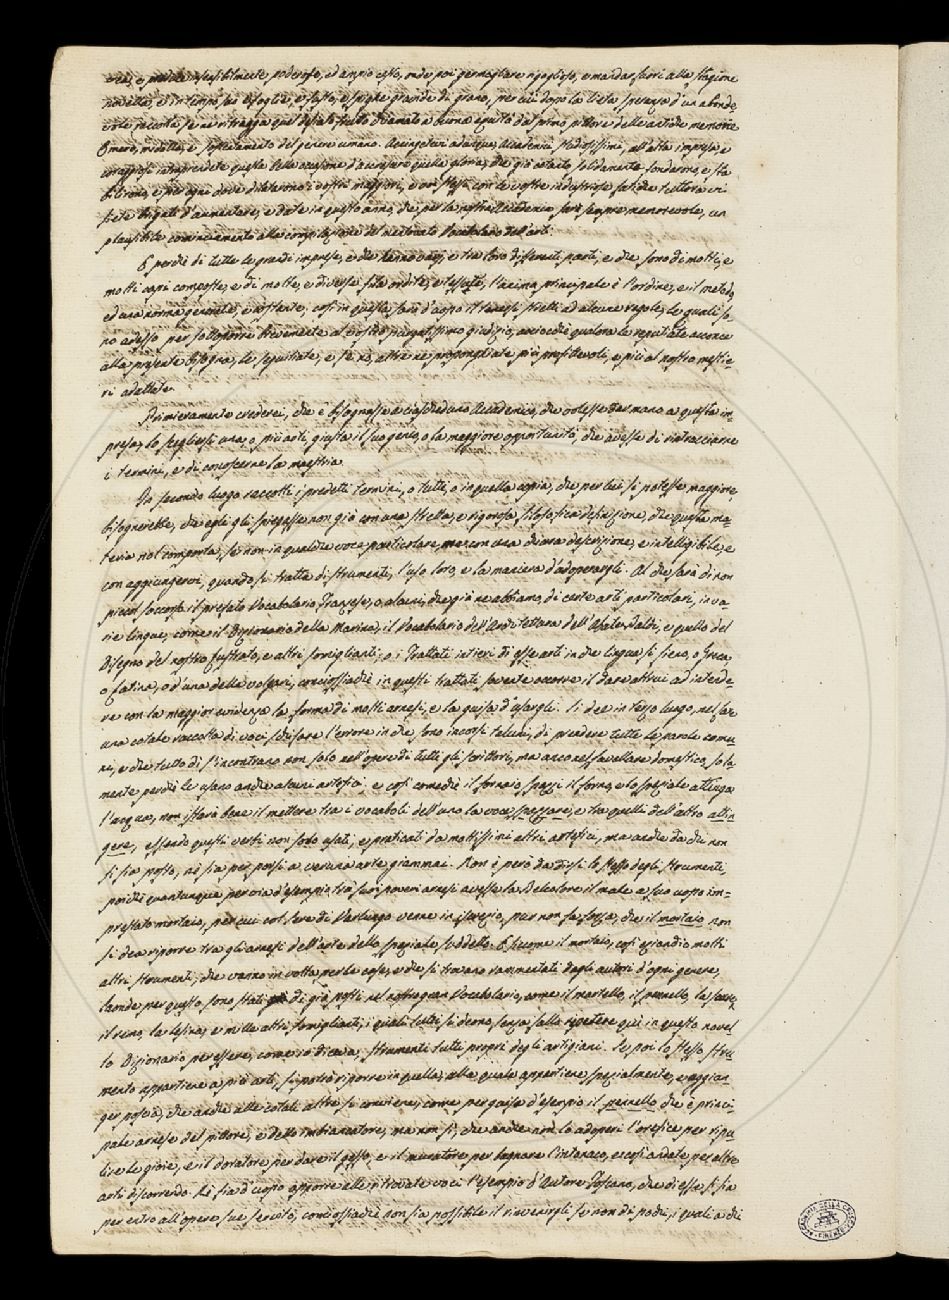 poderoso, ed ampio cesto, onde poi germogliare rigoglioso, e mandar fuori alla stagione
novella, e in tempo, sue foglie, e fusto, e spighe grandi di grano, per cui dopo la lieta speranza d'un abonde-
vole raccolta, se ne ritragga quel desiato frutto
Omero, ricetto, e sostentamento del genere umano. Accingetevi adunque, Accademici studiosissimi, all'alta impresa, e
coraggiosi intraprendete questa bella occasione d'accrescere quella gloria, che già cotanto solidamente fondarono, e sta-
bilirono, e per ogni dove dilatarono i vostri maggiori, e voi stessi con le vostre industriose fatiche tuttora vi
siete brigati d'aumentare, e date in questo anno, che per la nostra Accademia sarà sempre memorevole, un
plausibile cominciamento alla compilazione del mentovato Vocabolario dell'arti.
E perchè di tutte le grandi imprese, e che hanno varj, e tra loro differenti parti, e che sono di molti, e
molti capi composte, e di molte, e diverse fila ordite, e tessute, l'anima principale è l'ordine, e il metodo,
ed una norma generale, e costante, così in questa sarà d'uopo il tenersi stretti ad alcune regole, le quali so-
no adesso per sottoporre brevemente al vostro purgatissimo giudizio, acciocchè qualora le reputiate acconce
alla presente bisogna, le seguitiate, e se no, altre ne proponghiate più profittevoli, e più al nostro mestie-
ri adattate.
Primieramente crederei, che e' bisognasse a ciascheduno Accademico, che volesse dar mano a questa im-
presa, lo scegliersi una, o più arti, giusta il suo genio, o la maggiore opportunità, che avesse di rintracciarne
i termini, e di conoscerne la maestria.
In secondo luogo raccolti i predetti termini, o tutti, o in quella copia, che per lui si potesse maggiore,
bisognerebbe, che egli gli spiegasse non già con una stretta, e rigorosa filosofica definizione, che questa ma-
teria nol comporta, se non in qualche voce particolare, ma con una chiara descrizione, e intelligibile, e
con aggiungervi, quando si tratta di strumenti, l'uso loro, e la maniera d'adoperargli. Al che sarà di non
piccol soccorso il prefato Vocabolario Franzese, o alcuni, che già ne abbiamo, di certe arti particolari, in va-
rie lingue; come il Dizionario della Marina, il Vocabolario dell'Architettura dell'Abate Baldi, e quello del
Disegno del nostro Lustrato, e altri somiglianti; o i Trattati intieri di esse arti in che lingua si sieno, o Greca,
o Latina, o d'una delle volgari, conciossiachè in questi trattati sovente occorre il dare altrui ad intende-
re con la maggior evidenza la forma di molti arnesi, e la guisa d'usargli. Si dee in terzo luogo, nel far
una cotale raccolta di voci schifare l'errore in che sono incorsi taluni, di prendere tutte le parole comu-
ni, e che tutto dì s'incontrano non solo nell'opere di tutti gli scrittori, ma anco nel favellare domestico, sola-
mente perchè le usano anche alcuni artefici: e così comechè il fornaio spazzi il forno, e lo speziale attinga
l'acqua, non istarà bene il mettere tra i vocaboli dell'uno la voce spazzare, e tra quelli dell'altro attin-
gere, essendo questi verbi non solo usati, e praticati da moltissimi altri artefici, ma anche da chi non
si sia posto, nè sia per porsi a veruna arte giammai. Non è però da dirsi lo stesso degli strumenti,
poichè quantunque per via d'esempio tra' suoi poveri arnesi avesse la Belcolore il male a suo uopo im-
prestato mortaio, per cui col sere di Varlungo venne in iscrezio, pur non fa forza, che il mortaio non
si dea riporre tra gli arnesi dell'arte dello speziale suddetto. E siccome il mortaio, così eziandio molti
altri strumenti, che vanno in volta per le case, e che si trovano rammentati dagli autori d'ogni genere,
laonde per questo sono stati di già posti nel nostro gran Vocabolario, come il martello, il pennello, la sesta,
il remo, la lesina, e mille altri somiglianti, i quali tutti si deono, senza fallo ripetere quì in questo novel-
lo Dizionario per essere, come io diceva, strumenti tutti proprj degli artigiani. Se poi lo stesso stru-
mento appartiene a più arti, si potrà riporre in quella, alla quale appartiene spezialmente, e aggiun-
ger poscia, che anche alle cotali altre si conviene; come per guisa d'esempio il pennello che è princi-
pale arnese del pittore, e dello imbiancatore, ma non sì, che anche non lo adoperi l'orefice per ripu-
lire le gioie, e il doratore per dare il gesso, e il muratore per bagnare l'intonaco, e così andate per altre
arti discorrendo. Nè fia d'uopo apporre alle ritrovate voci l'esempio d'Autore Toscano, che di esse si sia
per entro all'opere sue servito, conciossiachè non sia possibile il rinvenirgli se non di pochi, i quali a chi
ACCADEMIA DELLA CRUSCA
FIRENZE